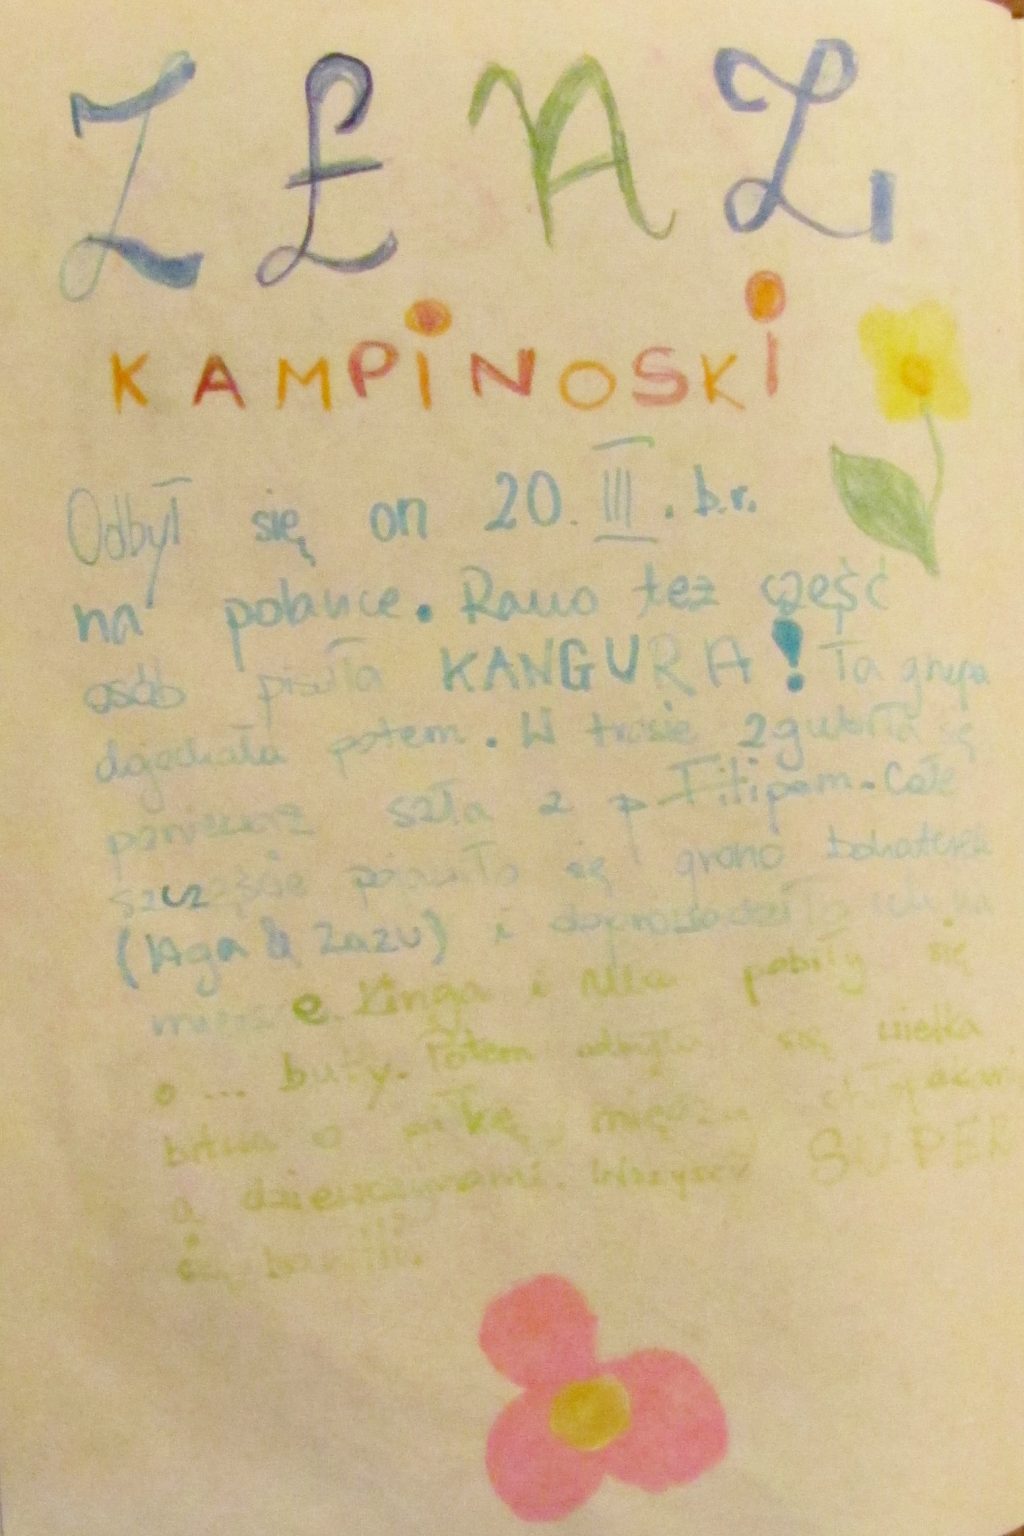 ZŁAZ
KAMPINOSKI
Odbył się on 20.III. b.r.
na polance. Rano też część
osób pisała KANGURA! Ta grupa
dojechała potem. W trasie zgubiła się
ponieważ szła z p. Filipem. Całe
szczęście pojawiło się grono bohaterek
(Aga & Zazu) i doprowadziło na
miejsce. Kinga i Ula pobiły się
o ... buty. Potem odbyła się wielka
bitwa o piłkę, między chłopakami
a dziewczynami. Wszyscy SUPER
się bawili.